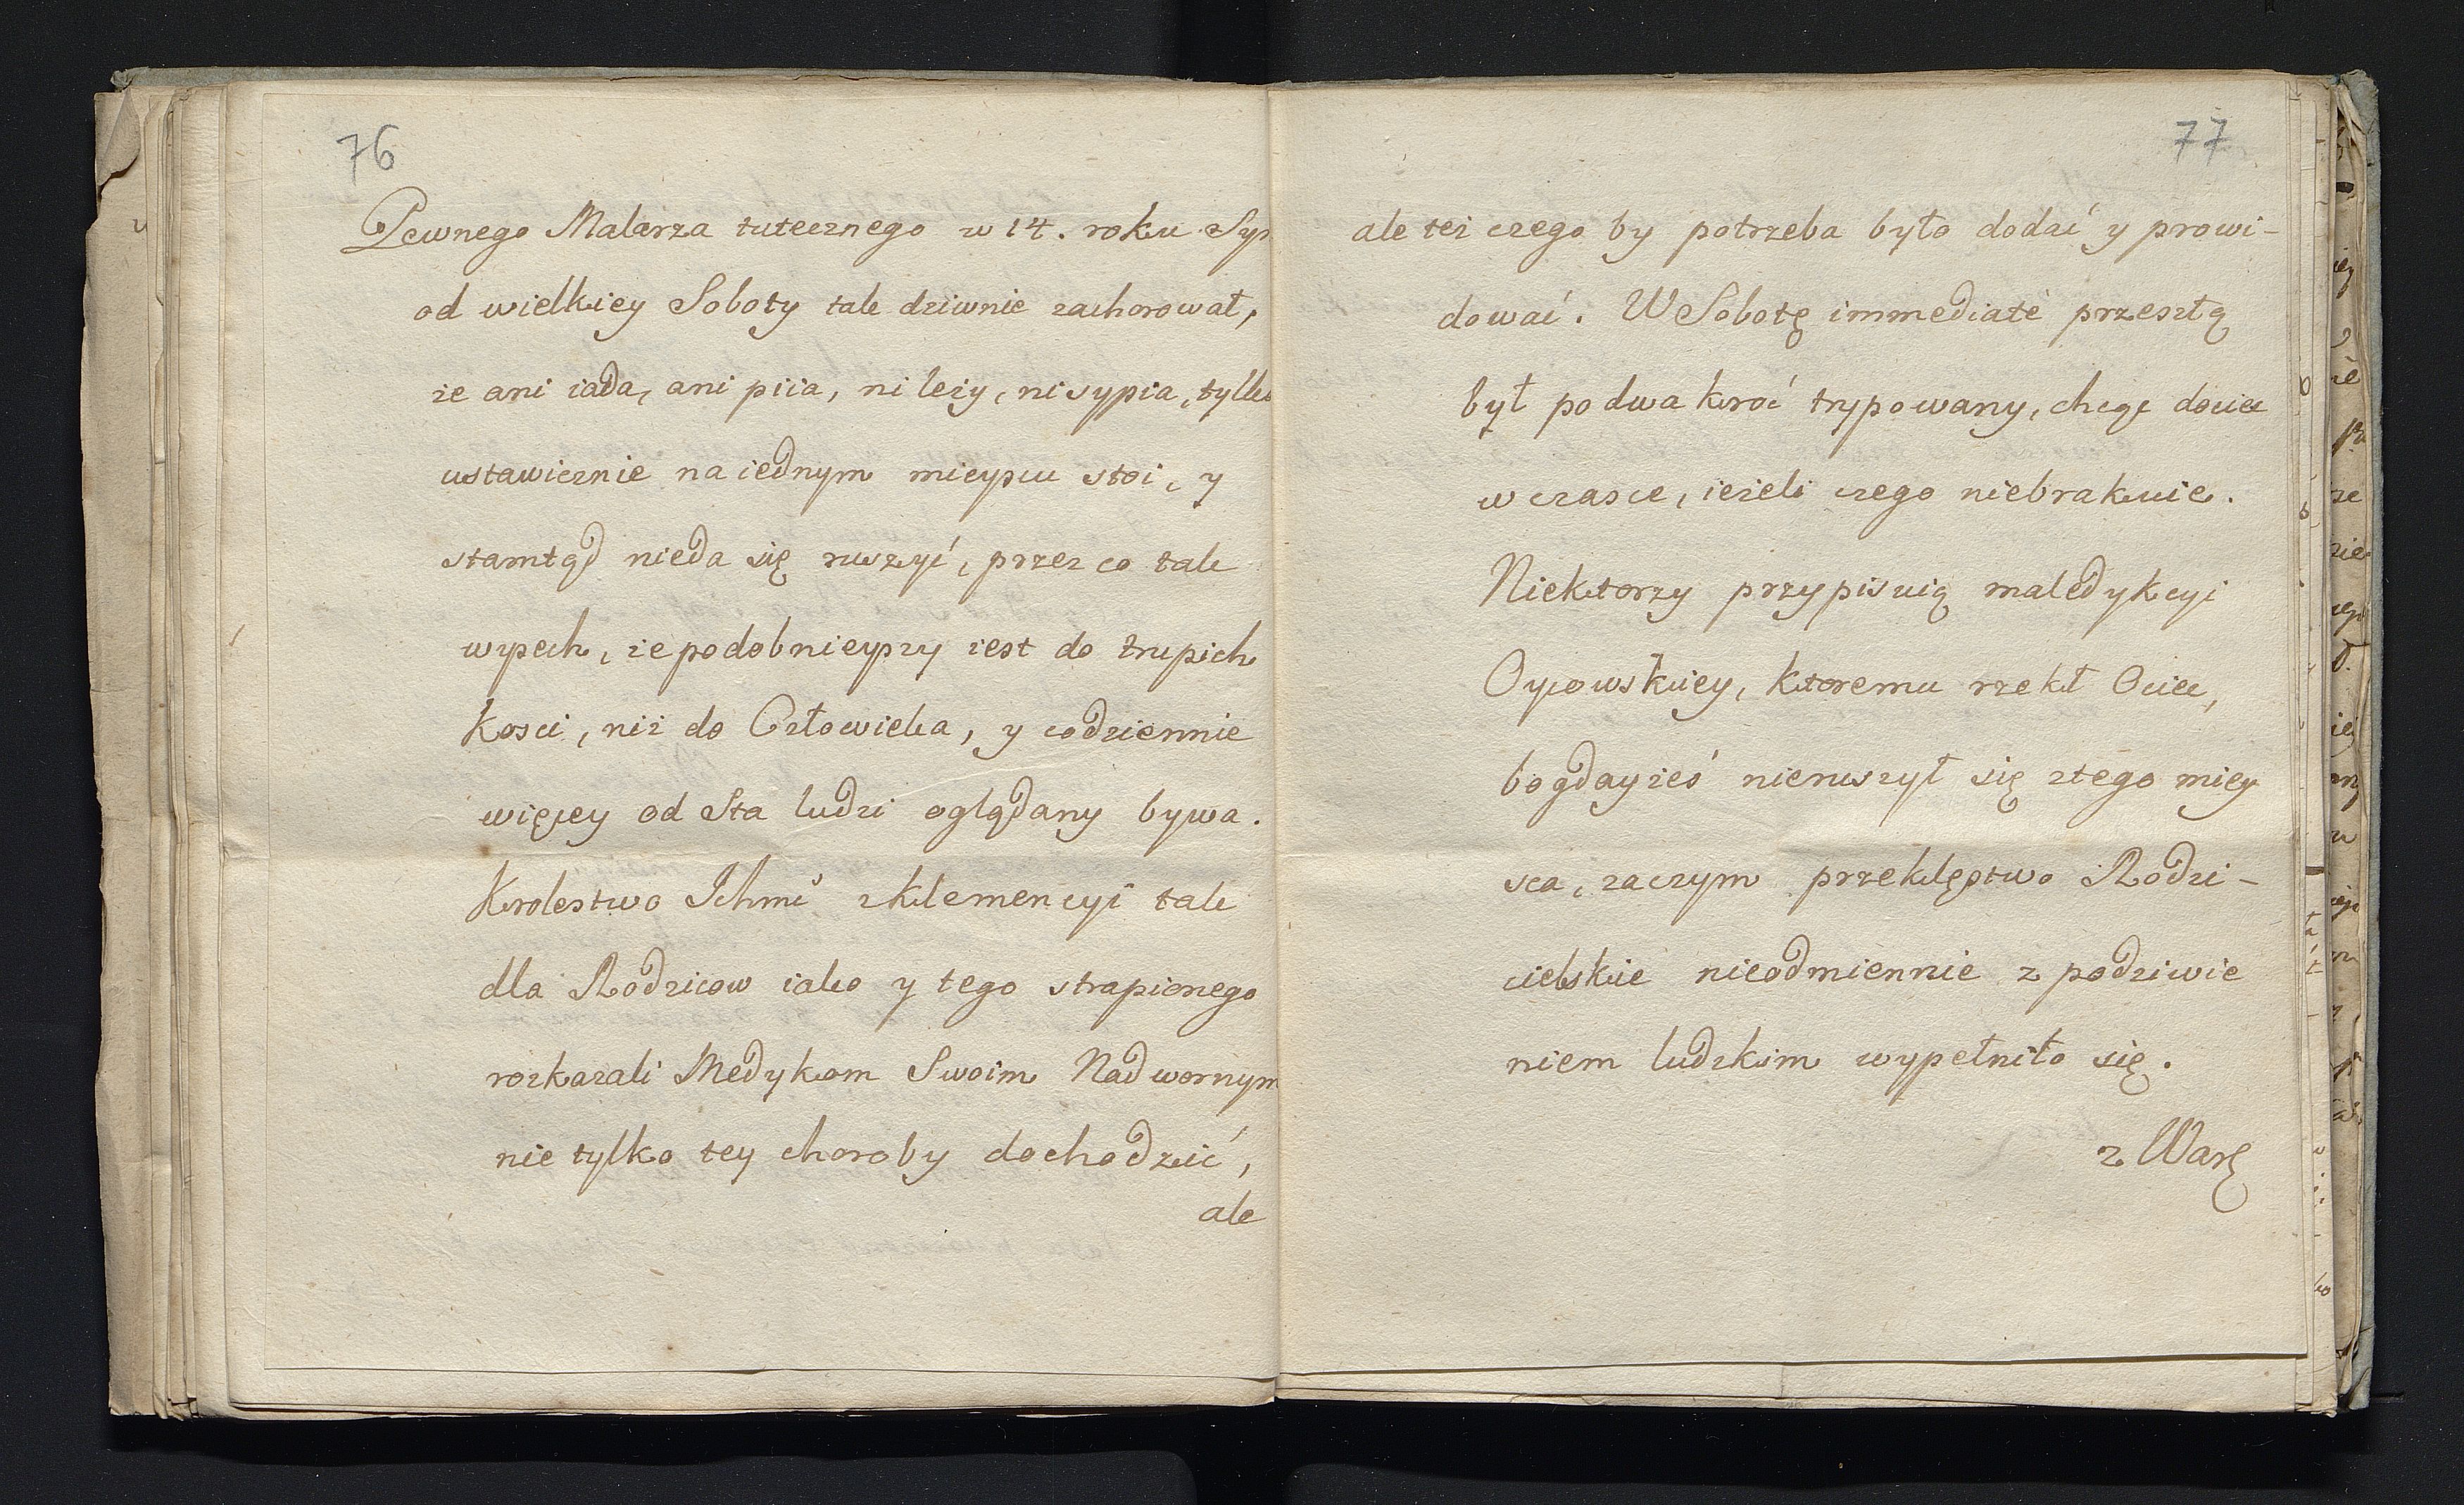 76
Pewnego Malarza tutecznego w 14. roku Syn
od wielkiey Soboty tak dziwnie zachorował,
że ani iada, ani piia, ni leży, ni sypia, tylko
ustawicznie na iednym mieyscu stoi, y
stamtąd nieda się ruszyć, przez co tak
wysech, że podobnieyszy iest do trupich
kosci, niż do Człowieka, y codziennie
więcey od Sta ludzi oglądany bywa.
Krolestwo Ichmć z klemencyi tak
dla Rodzicow iako y tego strapionego
rozkazali Medykom Swoim Nadwornym
nie tylko tey choroby dochodzić,
ale
77
ale też czego by potrzeba było dodać y prowi-
dować. W Sobotę immediatè przeszłą
był po dwa kroć trypowany, chcąc dociec
w czasce, ieżeli czego niebrakuie.
Niektorzy przypisuią maledykcyi
Oycowskiey, ktoremu rzekł Ociec,
bogdayżeś nieruszył się z tego miey
sca, zaczym przeklęstwo Rodzi-
cielskie nieodmiennie z podziwie
niem ludzkim wypełniło się.
z Warß